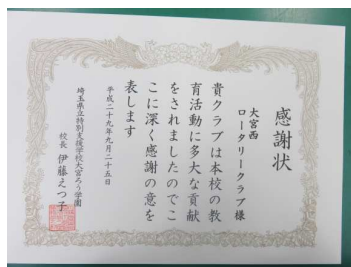 感謝状
大宮西
ロータリークラブ様
貴クラブは本校の教
育活動に多大な貢献
をされましたのでこ
こに深く感謝の意を
表します
平成二十九年九月二十五日
埼玉県立特別支援学校大宮ろう学園
校長 伊藤えつ子